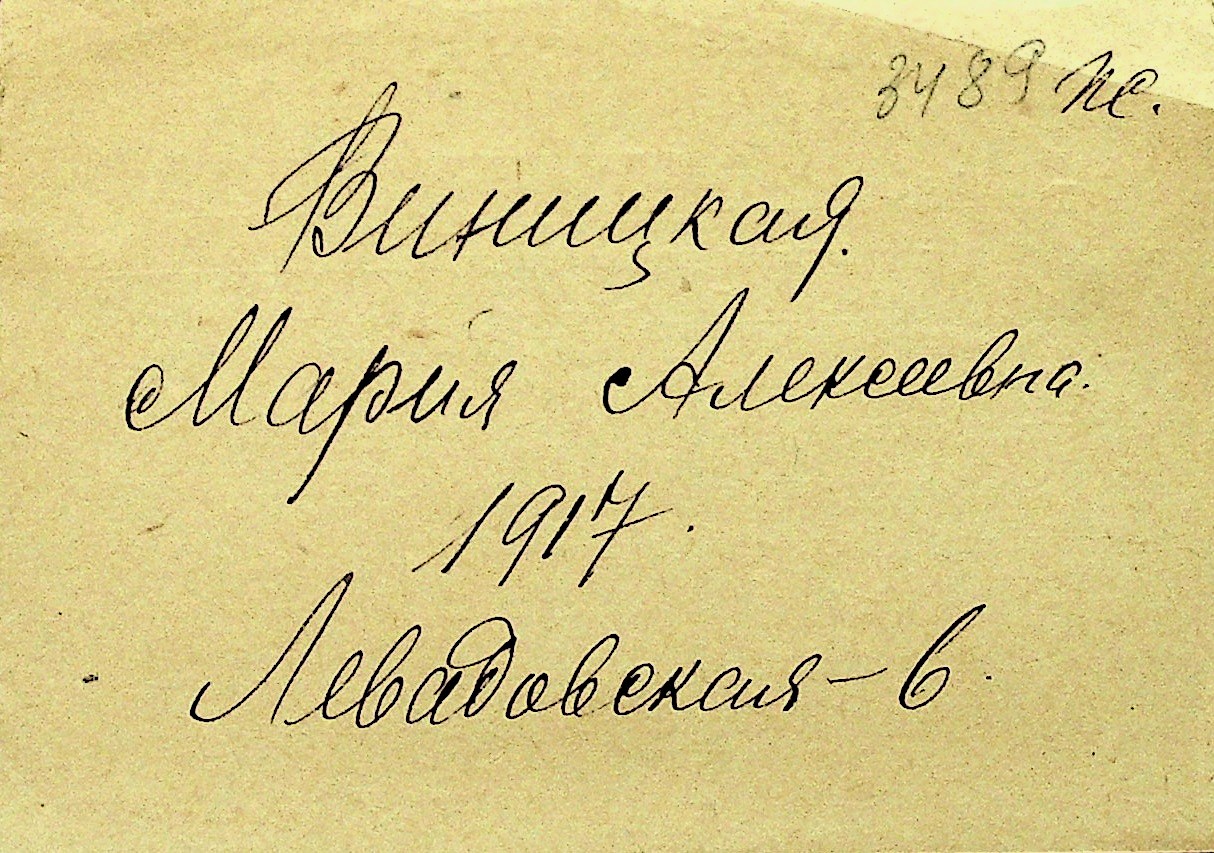 3489 пс.
Виницкая.
Мария Алексеевна.
1917.
Левадовская – 6.